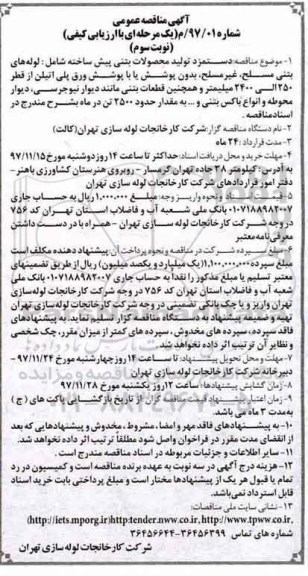 آگهی مناقصه عمومی
شماره ۹۷/۰۱/م(یک مرحله ای با ارزیابی کیفی)
(نوبت سوم)
۱- موضوع مناقصه: دستمزد تولید محصولات بتنی پیش ساخته شامل : لوله‌های
بتنی مسلح، غیرمسلح، بدون پوشش یا با پوشش ورق پلی اتیلن از قطر
۲۵۰ الی ۲۴۰۰ میلیمتر و همچنین قطعات بتنی مانند دیوار نیوجرسی، دیوار
محوطه و انواع باکس بتنی و ... به مقدار حدود ۲۵۰۰ تن در ماه بشرح مندرج در
اسناد مناقصه
۲- نام دستگاه مناقصه گزار: شرکت کارخانجات لوله سازی تهران(کالت)
۳- مدت قرارداد: ۲۴ ماه
۴- مهلت خرید و محل دریافت اسناد: حداکثر تا ساعت ۱۴ روز دوشنبه مورخ ۹۷/۱۱/۱۵
به آدرس: کیلومتر ۱۸ جاده تهران گرمسار - روبروی هنرستان کشاورزی باهنر -
دفتر امور قراردادهای شرکت کارخانجات لوله سازی تهران
۵- قیمت و نحوه واریز وجه: مبلغ ۱,۰۰۰,۰۰۰ ریال به حساب جاری
۰۱۰۷۱۸۸۹۸۲۰۰۷ بانک ملی شعبه آب و فاضلاب استان تهران کد ۷۵۶
در وجه شرکت کارخانجات لوله سازی تهران - همراه با در دست داشتن
معرفی‌نامه معتبر
۶- مبلغ سپرده شرکت در مناقصه و نحوه پرداخت آن: پیشنهاد دهنده مکلف است
مبلغ سپرده ۱,۱۰۰,۰۰۰,۰۰۰ (یک میلیارد و یکصد میلیون) ریال از طریق تضمینهای
معتبر تسلیم یا مبلغ مذکور را نقداً به حساب جاری ۰۱۰۷۱۸۸۹۸۲۰۰۷ بانک ملی
شعبه آب و فاضلاب استان تهران کد ۷۵۶ در وجه شرکت کارخانجات لوله سازی
تهران واریز و یا چک بانکی تضمینی در وجه شرکت کارخانجات لوله سازی تهران
تهیه و ضمیمه پیشنهاد به دستگاه مناقصه گزار تسلیم نماید. به پیشنهادهای
فاقد سپرده، سپرده های مخدوش، سپرده های کمتر از میزان مقرر، چک شخصی
و نظایر آن ترتیب اثر داده نخواهد شد.
۷- مهلت و محل تحویل پیشنهاد: تا ساعت ۱۴ روز چهارشنبه مورخ ۹۷/۱۱/۲۴ -
دبیرخانه شرکت کارخانجات لوله سازی تهران
۸- زمان گشایش پیشنهادها: ساعت ۱۲ روز یکشنبه مورخ ۹۷/۱۱/۲۸
۹- زمان اعتبار پیشنهاد قیمت مناقصه گران از تاریخ بازگشایی پاکت های (ج)
به مدت ۳ ماه می باشد.
۱۰- به پیشنهادهای فاقد مهر و امضا، مشروط ، مخدوش و پیشنهادهایی که بعد
از انقضای مدت مقرر در فراخوان واصل شود مطلقاً ترتیب اثر داده نخواهد شد.
۱۱- سایر اطلاعات و جزئیات مربوطه در اسناد مناقصه مندرج است.
۱۲- هزینه درج آگهی در سه نوبت به عهده برنده مناقصه است و کمیسیون در رد
تمام یا قبول هر یک از پیشنهادها مختار است و مبلغ پرداختی بابت خرید اسناد
قابل استرداد نمی‌باشد.
۱۳- نشانی سایت ملی مناقصات:
(http://iets.mporg.ir)http:tender.nww.co.ir, http://www.tpww.co.ir,
شماره های تماس ۳۶۴۵۶۳۹۹-۳۶۴۵۶۶۴۴
شرکت کارخانجات لوله سازی تهران